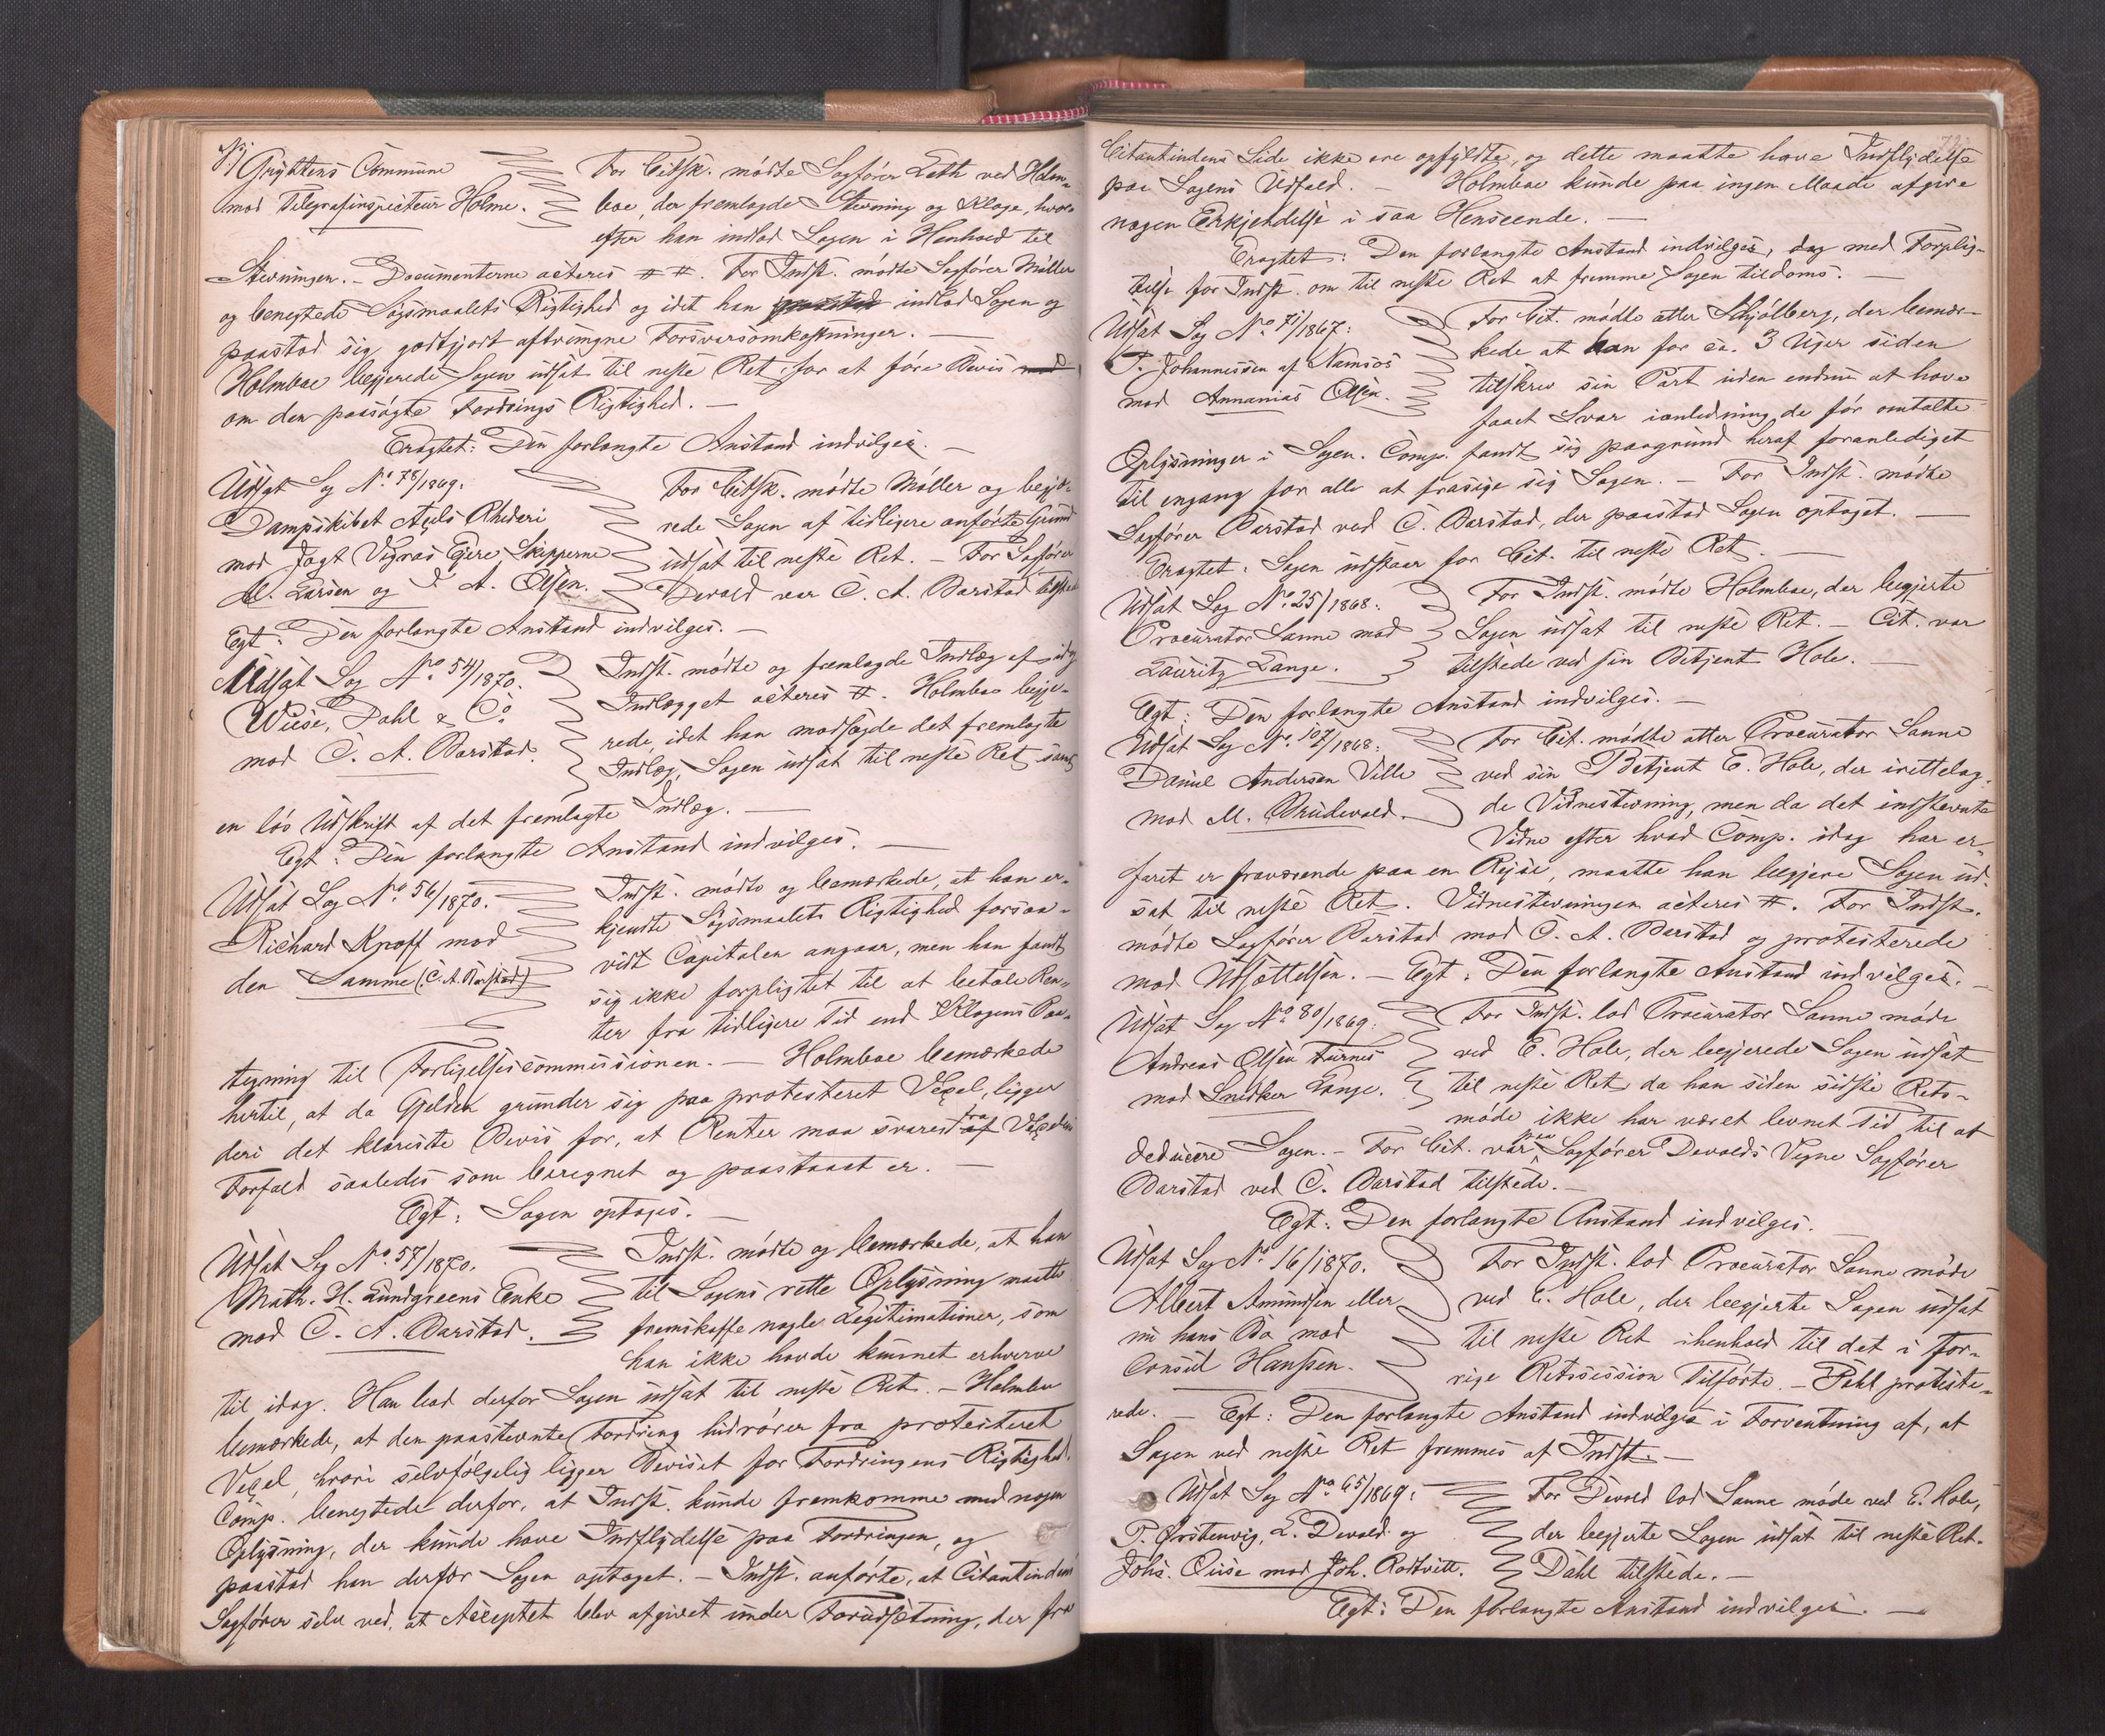 Gryttens Commune
mod Telegrafinspecteur Holme.
For Citsk. mødte Sagfører Leth ved Holm-
boe, der fremlagde Stevning og Klage, hvor-
efter han indlod Sagen i Henhold til
Stevningen. - Documenterne acteres # #. For Indst. mødte Sagfører Møller
og benegtede Søgsmaalets Rigtighed og idet han indlod Sagen og
paastod sig godtgjort aftvungne Forsvarsomkostninger. -
Holmboe begjerede Sagen udsat til neste Ret for at føre Bevis
om den paasøgte Fordrings Rigtighed. -
Eragtet: Den forlangte Anstand indvilges. -
Udsat Sag No. 78/1869.
Dampskibet Ægils Rhederi
mod Jagt Vigras Ejere Skipperne
M. Larsen og I. A. Olsen.
For Citsk. mødte Møller og begje-
rede Sagen af tidligere anførte Grund
udsat til neste Ret. - For Sagfører
Devold var C. A. Barstad tilstede
Egt: Den forlangte Anstand indvilges. -
Udsat Sag No. 54/1870.
Wiese, Dahl & Co.
mod C. A. Barstad.
Indst. mødte og fremlagde Indlæg af idag
Indlægget acteres #. Holmboe begje-
rede, idet han modsagde det fremlagte
Indlæg, Sagen udsat til neste Ret samt
en løs Udskrift af det fremlagte Indlæg. -
Egt: Den forlangte Anstand indvilges. -
Udsat Sag No. 56/1870.
Richard Knoff mod
den Samme (C. A. Barstad)
Indst. mødte og bemærkede, at han er-
kjendte Søgsmaalets Rigtighed forsaa-
vidt Capitalen angaar, men han fandt
sig ikke forpligtet til at betale Ren-
ter fra tidligere Tid end Klagens Paa-
tegning til Forligelsescommissionen. - Holmboe bemærkede
hertil, at da Gjelden grunder sig paa protesteret Vexel, ligger
deri det klareste Bevis for, at Renter maa svares fra Vexelens
Forfald saaledes som beregnet og paastaaet er. -
Egt: Sagen optages. -
Udsat Sag No. 57/1870.
Math. H. Lundgreens Enke
mod C. A. Barstad.
Indst. mødte og bemærkede, at han
til Sagens rette Oplysning maatte
fremskaffe nogle Legitimationer, som
han ikke havde kunnet erhverve
til idag. Han bad derfor Sagen udsat til neste Ret. - Holmboe
bemærkede, at den paastevnte Fordring hidrører fra protesteret
Vexel, hvori selvfølgelig ligger Beviset for Fordringens Rigtighed.
Comp. benegtede derfor, at Indst. kunde fremkomme med nogen
Oplysning, der kunde have Indflydelse paa Fordringen, og
paastod han derfor Sagen optaget. - Indst. anførte, at Citantindens
Sagfører selv ved, at Acceptet blev afgivet under Forudsætning, der fra
Citantindens Side ikke ere opfyldte, og dette maatte have Indflydelse
paa Sagens Udfald. - Holmboe kunde paa ingen Maade afgive
nogen Erkjendelse i saa Henseende. -
Eragtet: Den forlangte Anstand indvilges, dog med Forplig-
telse for Indst. om til neste Ret at fremme Sagen tildoms. -
Udsat Sag No. 71/1867:
T. Johannessen af Namsos
mod Annanias Olsen.
For Cit. mødte atter Schjølberg, der bemær-
kede at han for ca. 3 Uger siden
tilskrev sin Part uden endnu at have
faaet Svar ianledning de før omtalte
Oplysninger i Sagen. Comp. fandt sig paagrund heraf foranlediget
til engang for alle at frasige sig Sagen. - For Indst. mødte
Sagfører Barstad ved C. Barstad, der paastod Sagen optaget. -
Eragtet: Sagen udstaar for Cit. til neste Ret. -
Udsat Sag No. 25/1868:
Procurator Sanne mod
Lauritz Lange.
For Indst. mødte Holmboe, der begjerte
Sagen udsat til neste Ret. - Cit. var
tilstede ved sin Betjent Hole. -
Egt: Den forlangte Anstand indvilges. -
Udsat Sag No. 107/1868:
Daniel Andersen Ville
mod M. Brudevold.
For Cit. mødte atter Procurator Sanne
ved sin Betjent E. Hole, der irettelag-
de Vidnestevning, men da det indstevnte
Vidne efter hvad Comp. idag har er-
faret er fraværende paa en Rejse, maatte han begjere Sagen ud-
sat til neste Ret. Vidnestevningen acteres #. For Indst.
mødte Sagfører Barstad mod C. A. Barstad og protesterede
mod Udsættelsen. - Egt: Den forlangte Anstand indvilges. -
Udsat Sag No. 80/1869:
Andreas Olsen Furnes
mod Snedker Lange.
For Indst. lod Procurator Sanne møde
ved E. Hole, der begjerede Sagen udsat
til neste Ret da han siden sidste Rets-
møde ikke har været levnet Tid til at
deducere Sagen. - For Cit. var paa Sagfører Devolds Vegne Sagfører
Barstad ved C. Barstad tilstede. -
Egt: Den forlangte Anstand indvilges.
Udsat Sag No. 16/1870.
Albert Amundsen eller
nu hans Bo mod
Consul Hanssen.
For Indst. lod Procurator Sanne møde
ved E. Hole, der begjerte Sagen udsat
til neste Ret ihenhold til det i for-
rige Retssession Tilførte. - Pohl proteste-
rede. - Egt: Den forlangte Anstand indvilges i Forventning af, at
Sagen ved neste Ret fremmes af Indst. -
Udsat Sag No. 65/1869:
P. Ørstenvig, L. Devold og
Johs. Quise mod Joh. Rødtvitt.
For Devold lod Sanne møde ved E. Hole,
der begjerte Sagen udsat til neste Ret.
Dahl tilstede. -
Egt: Den forlangte Anstand indvilges. -